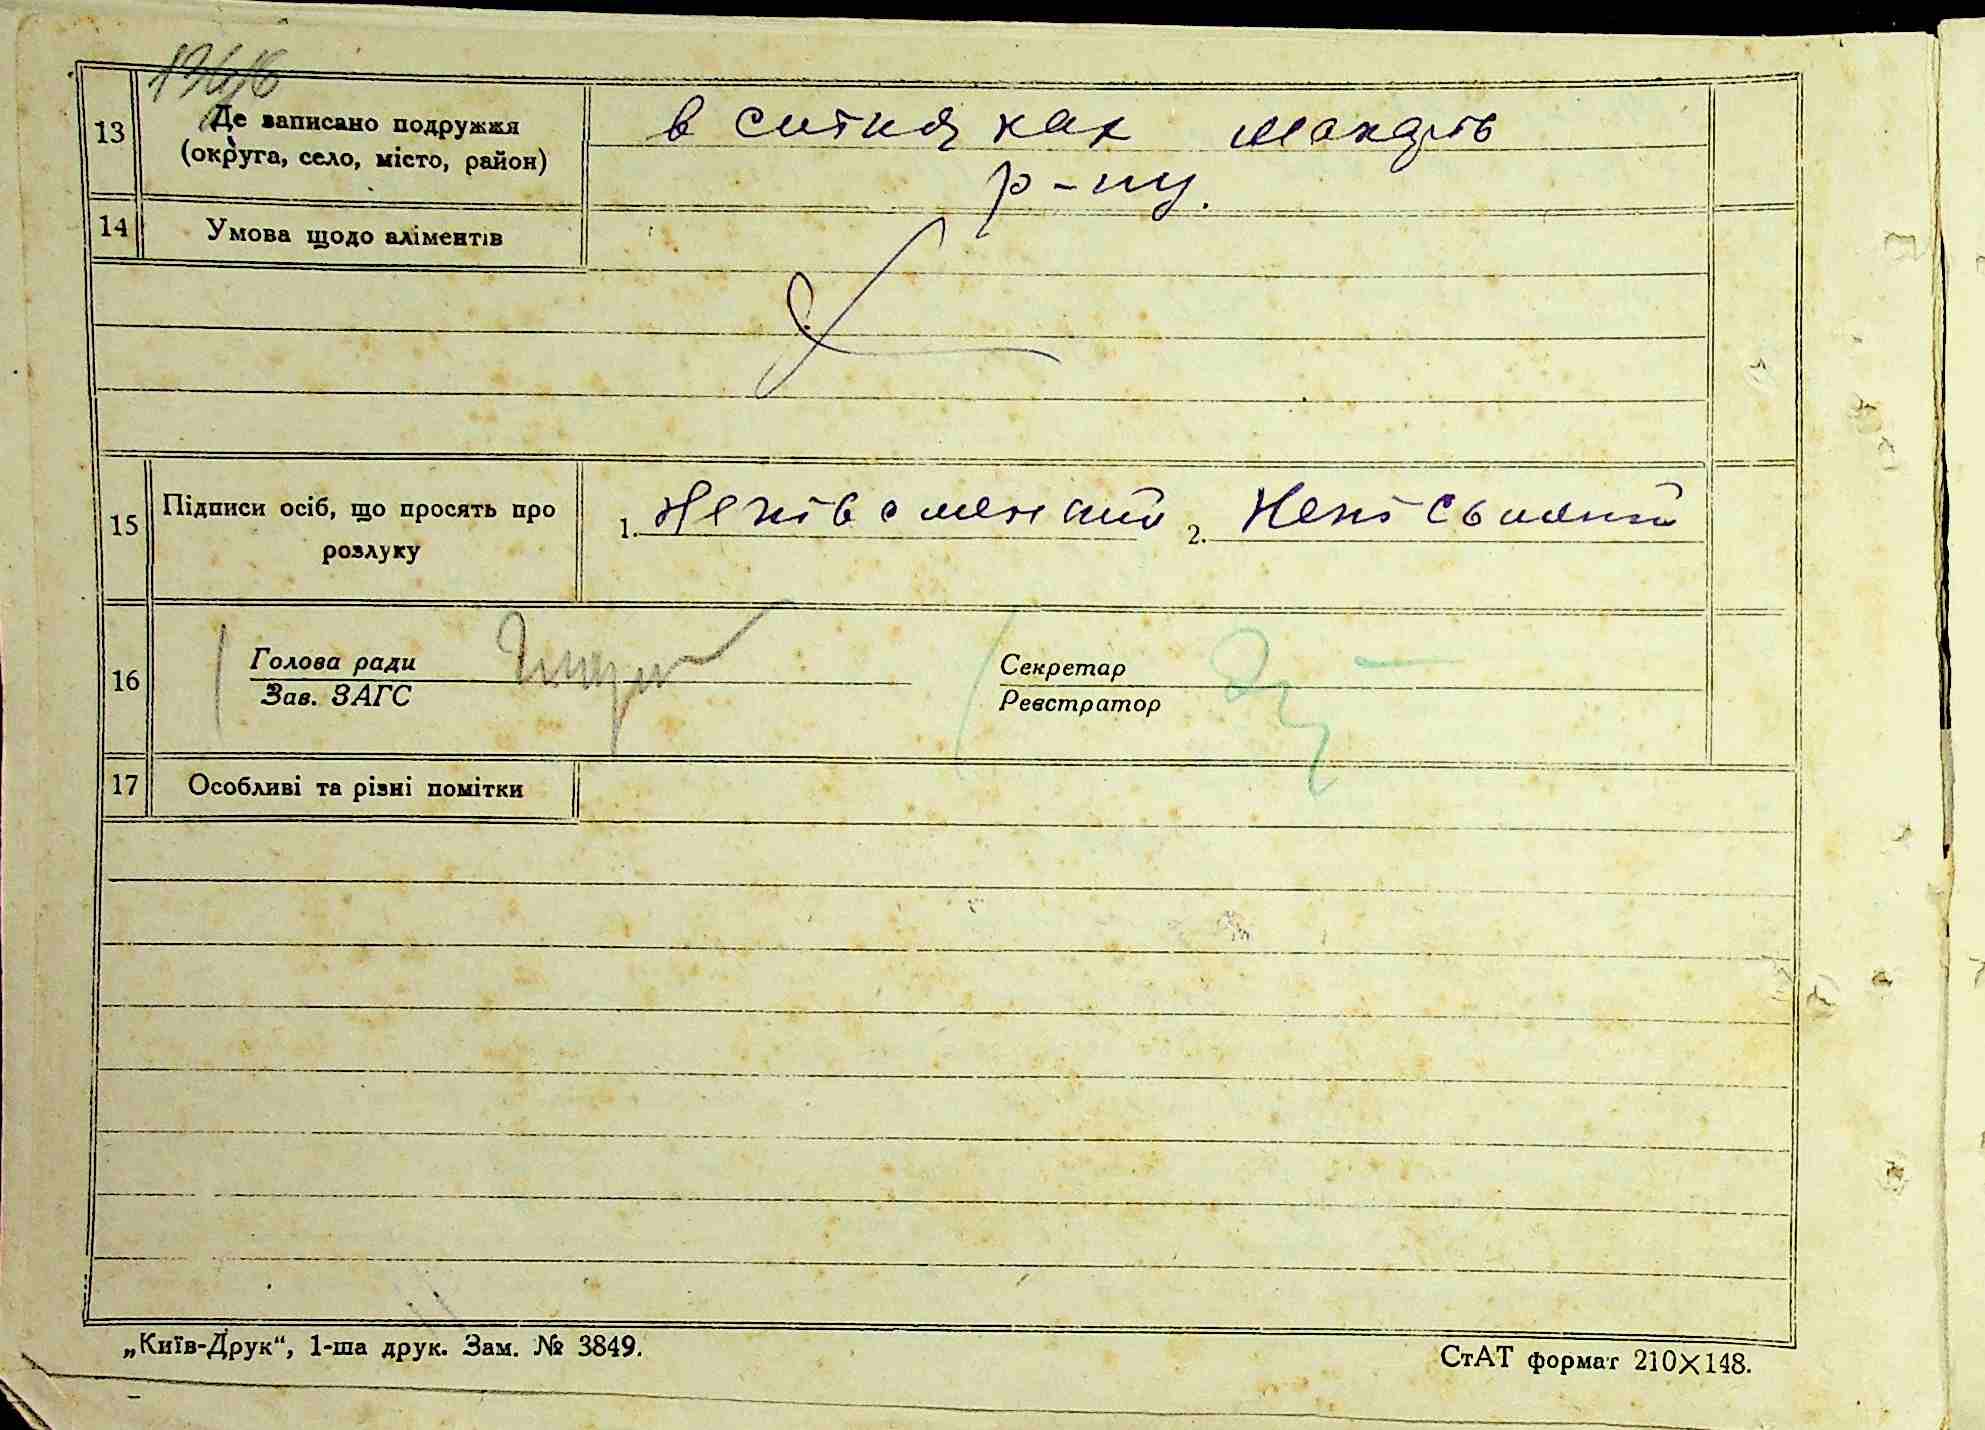 13
Де записано подружжя
(округа, село, місто, район)
в ситняках макарів
р-ну.
14
Умова щодо аліментів
15
Підписи осіб, що просять про
розлуку
1. 2.
16
Голова ради
Зав. ЗАГС
Секретар
Реєстратор
17
Особливі та різні помітки
„Київ-Друк“, 1-ша друк. Зам. № 3849.
СтАТ формат 210×148.